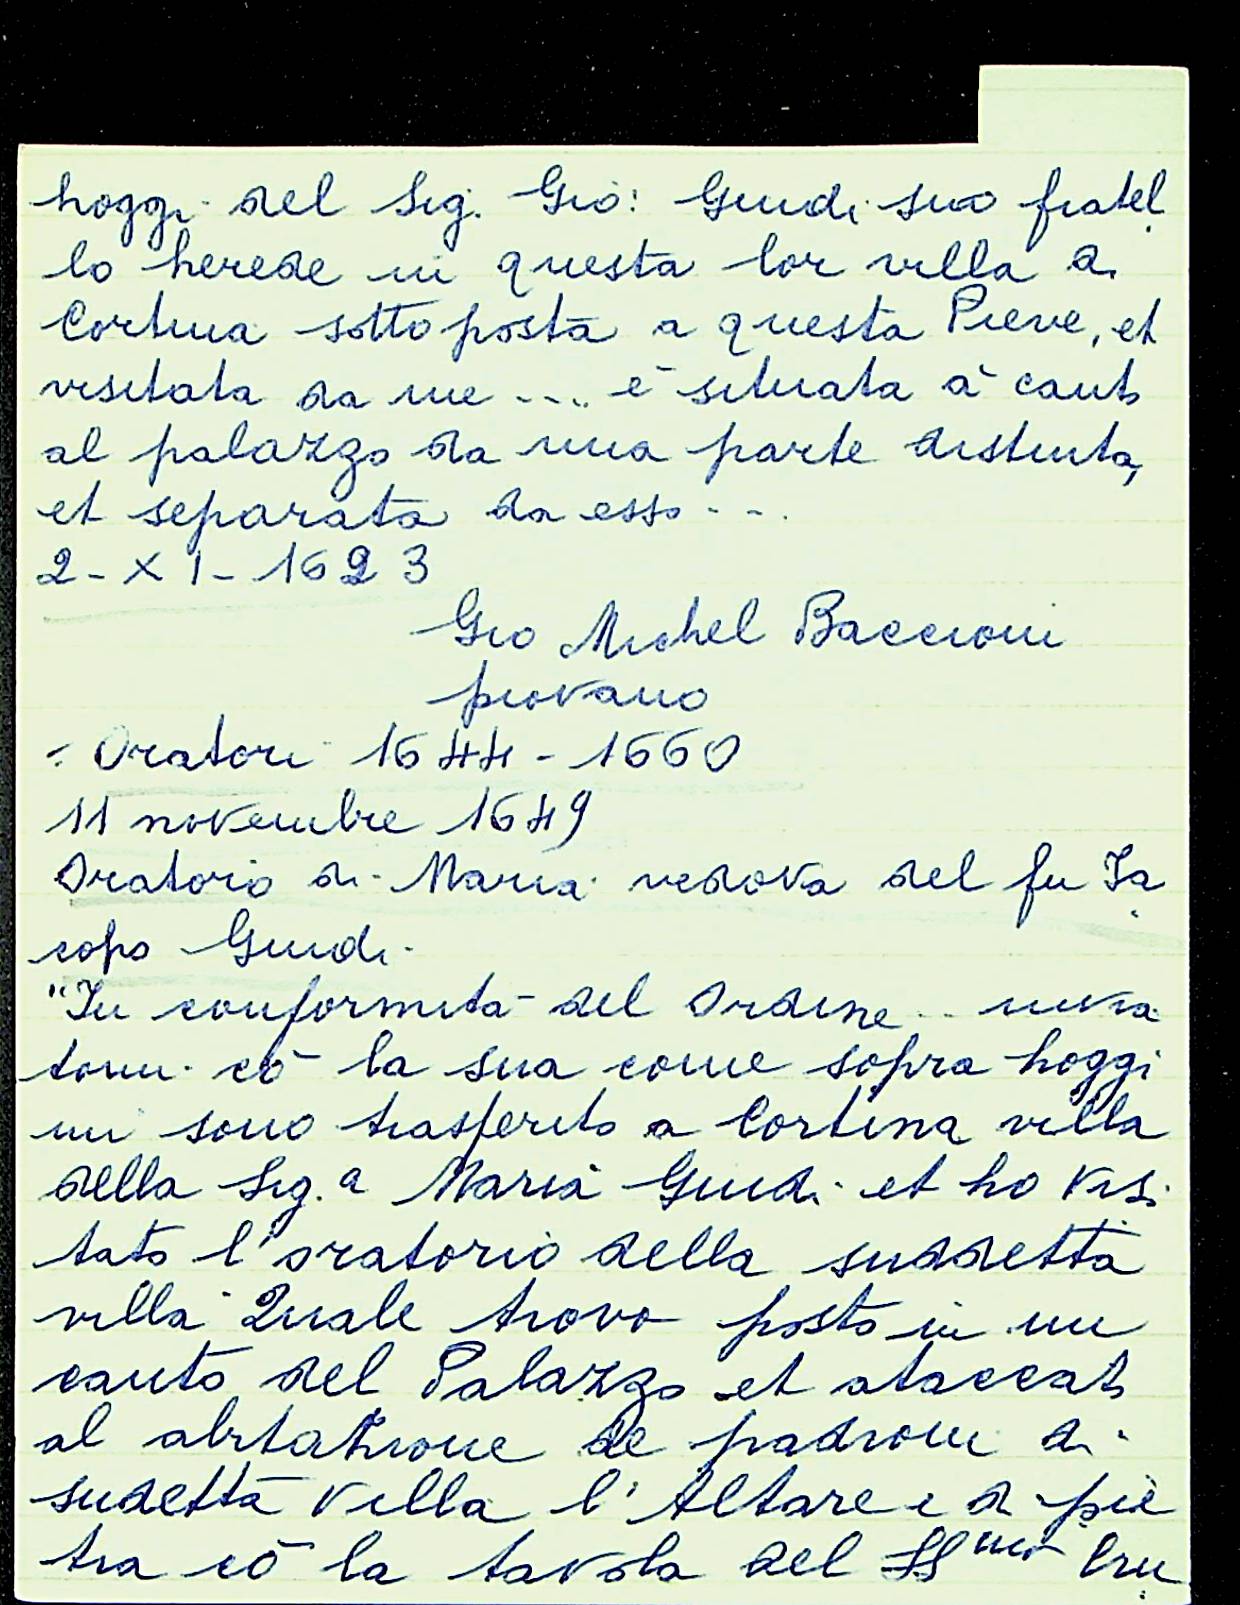 hoggi del Sig. Gio: Guidi suo fratel
lo herede in questa lor villa di
Cortina sottoposta a questa Pieve, et
visitata da me .... è situata à canto
al palazzo da una parte distinta,
et separata da esso ...
2-XI-1623
Gio Michel Baccioni
piovano
: Oratori 1644-1660
11 novembre 1649
Oratorio di Maria vedova del fu Ja
copo Guidi.
"In conformità del Ordine .. inviа
tomi cō la sua come sopra hoggi
mi sono trasferito a Cortina villa
della Sig.a Maria Guidi et ho visi
tato l'oratorio della suddetta
villa Quale trovo posto in un
canto del Palazzo et ataccato
al abitatione de padroni di
sudetta villa l'Altare è di pie
tra cō la tavola del SSmo Cru